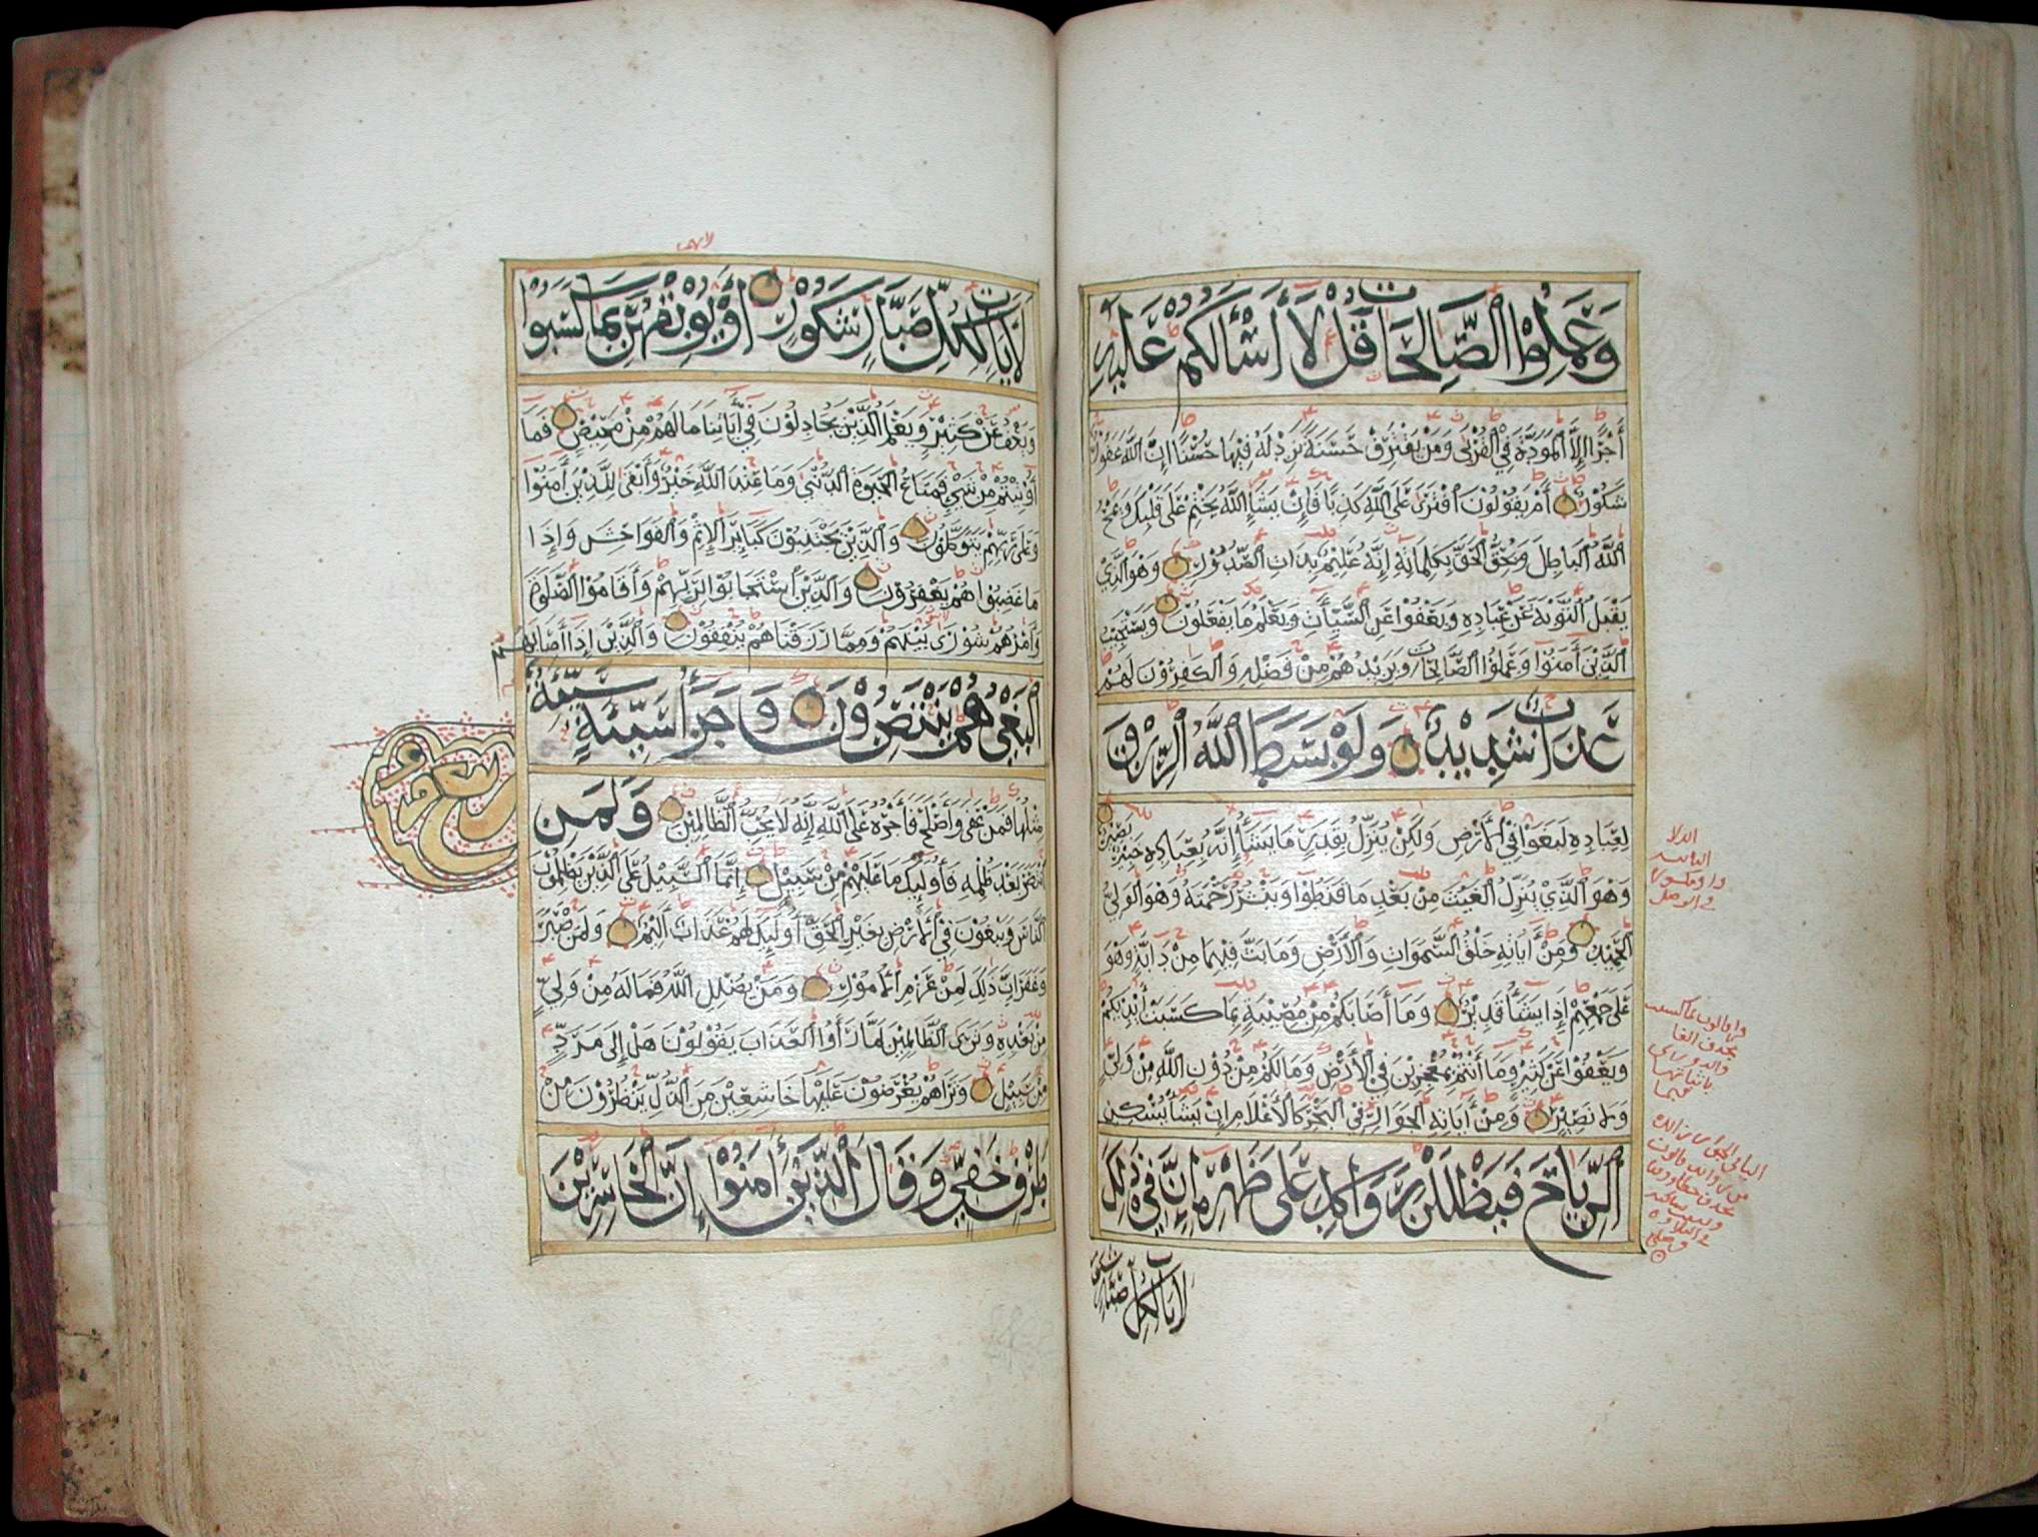 وَعَمِلُوا الصَّالِحَاتِ قُل لَا أَسْأَلُكُمْ عَلَيْهِ
أَجْرًا إِلَّا الْمَوَدَّةَ فِي الْقُرْبَى وَمَنْ يَقْتَرِفْ حَسَنَةً نَزِدْ لَهُ فِيهَا حُسْنًا إِنَّ اللَّهَ غَفُورٌ
شَكُورٌ أَمْ يَقُولُونَ افْتَرَى عَلَى اللَّهِ كَذِبًا فَإِنْ يَشَإِ اللَّهُ يَخْتِمْ عَلَى قَلْبِكَ وَيَمْحُ
اللَّهُ الْبَاطِلَ وَيُحِقُّ الْحَقَّ بِكَلِمَاتِهِ إِنَّهُ عَلِيمٌ بِذَاتِ الصُّدُورِ وَهُوَ الَّذِي
يَقْبَلُ التَّوْبَةَ عَنْ عِبَادِهِ وَيَعْفُوا عَنِ السَّيِّئَاتِ وَيَعْلَمُ مَا يَفْعَلُونَ وَيَسْتَجِيبُ
الَّذِينَ آمَنُوا وَعَمِلُوا الصَّالِحَاتِ وَيَزِيدُهُمْ مِنْ فَضْلِهِ وَالْكَافِرُونَ لَهُمْ
عَذَابٌ شَدِيدٌ وَلَوْ بَسَطَ اللَّهُ الرِّزْقَ
لِعِبَادِهِ لَبَغَوْا فِي الْأَرْضِ وَلَكِنْ يُنَزِّلُ بِقَدَرٍ مَا يَشَاءُ إِنَّهُ بِعِبَادِهِ خَبِيرٌ بَصِيرٌ
وَهُوَ الَّذِي يُنَزِّلُ الْغَيْثَ مِنْ بَعْدِ مَا قَنَطُوا وَيَنْشُرُ رَحْمَتَهُ وَهُوَ الْوَلِيُّ
الْحَمِيدُ وَمِنْ آيَاتِهِ خَلْقُ السَّمَوَاتِ وَالْأَرْضِ وَمَا بَثَّ فِيهِمَا مِنْ دَابَّةٍ وَهُوَ
عَلَى جَمْعِهِمْ إِذَا يَشَاءُ قَدِيرٌ وَمَا أَصَابَكُمْ مِنْ مُصِيبَةٍ بِمَا كَسَبَتْ أَيْدِيكُمْ
وَيَعْفُوا عَنْ كَثِيرٍ وَمَا أَنْتُمْ بِمُعْجِزِينَ فِي الْأَرْضِ وَمَا لَكُمْ مِنْ دُونِ اللَّهِ مِنْ وَلِيٍّ
وَلَا نَصِيرٍ وَمِنْ آيَاتِهِ الْجَوَارِ فِي الْبَحْرِ كَالْأَعْلَامِ إِنْ يَشَأْ يُسْكِنِ
الرِّيَاحَ فَيَظْلَلْنَ رَوَاكِدَ عَلَى ظَهْرِهِ إِنَّ فِي ذَلِكَ
لَآيَاتٍ لِكُلِّ صَبَّارٍ شَكُورٍ
لَآيَاتٍ لِكُلِّ صَبَّارٍ شَكُورٍ أَوْ يُوبِقْهُنَّ بِمَا كَسَبُوا
وَيَعْفُ عَنْ كَثِيرٍ وَيَعْلَمُ الَّذِينَ يُجَادِلُونَ فِي آيَاتِنَا مَا لَهُمْ مِنْ مَحِيصٍ فَمَا
أُوتِيتُمْ مِنْ شَيْءٍ فَمَتَاعُ الْحَيَوةِ الدُّنْيَا وَمَا عِنْدَ اللَّهِ خَيْرٌ وَأَبْقَى لِلَّذِينَ آمَنُوا
وَعَلَى رَبِّهِمْ يَتَوَكَّلُونَ وَالَّذِينَ يَجْتَنِبُونَ كَبَائِرَ الْإِثْمِ وَالْفَوَاحِشَ وَإِذَا
مَا غَضِبُوا هُمْ يَغْفِرُونَ وَالَّذِينَ اسْتَجَابُوا لِرَبِّهِمْ وَأَقَامُوا الصَّلَوةَ
وَأَمْرُهُمْ شُورَى بَيْنَهُمْ وَمِمَّا رَزَقْنَاهُمْ يُنْفِقُونَ وَالَّذِينَ إِذَا أَصَابَهُمُ
الْبَغْيُ هُمْ يَنْتَصِرُونَ وَجَزَاءُ سَيِّئَةٍ سَيِّئَةٌ
مِثْلُهَا فَمَنْ عَفَى وَأَصْلَحَ فَأَجْرُهُ عَلَى اللَّهِ إِنَّهُ لَا يُحِبُّ الظَّالِمِينَ وَلَمَنِ
انْتَصَرَ بَعْدَ ظُلْمِهِ فَأُولَئِكَ مَا عَلَيْهِمْ مِنْ سَبِيلٍ إِنَّمَا السَّبِيلُ عَلَى الَّذِينَ يَظْلِمُونَ
النَّاسَ وَيَبْغُونَ فِي الْأَرْضِ بِغَيْرِ الْحَقِّ أُولَئِكَ لَهُمْ عَذَابٌ أَلِيمٌ وَلَمَنْ صَبَرَ
وَغَفَرَ إِنَّ ذَلِكَ لَمِنْ عَزْمِ الْأُمُورِ وَمَنْ يُضْلِلِ اللَّهُ فَمَا لَهُ مِنْ وَلِيٍّ
مِنْ بَعْدِهِ وَتَرَى الظَّالِمِينَ لَمَّا رَأَوُا الْعَذَابَ يَقُولُونَ هَلْ إِلَى مَرَدٍّ
مِنْ سَبِيلٍ وَتَرَاهُمْ يُعْرَضُونَ عَلَيْهَا خَاشِعِينَ مِنَ الذُّلِّ يَنْظُرُونَ مِنْ
طَرْفٍ خَفِيٍّ وَقَالَ الَّذِينَ آمَنُوا إِنَّ الْخَاسِرِينَ